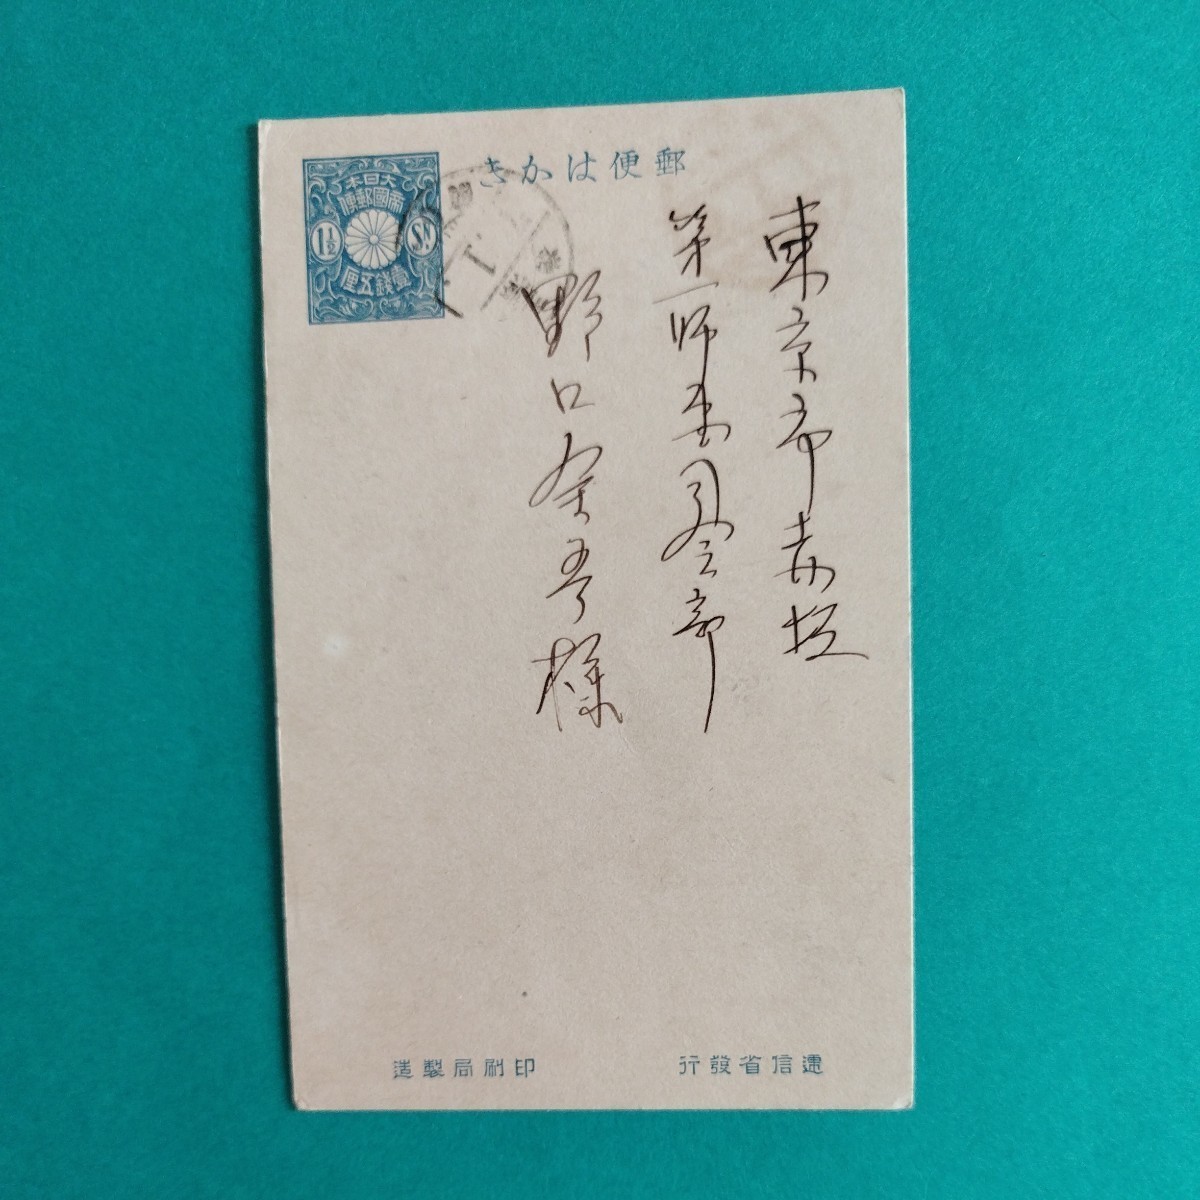 郵便はかき
大日本
帝國郵便
1½ Sn
壹銭五厘
東京市赤坂
第一師團司令部
野口
様
逓信省發行
印刷局製造